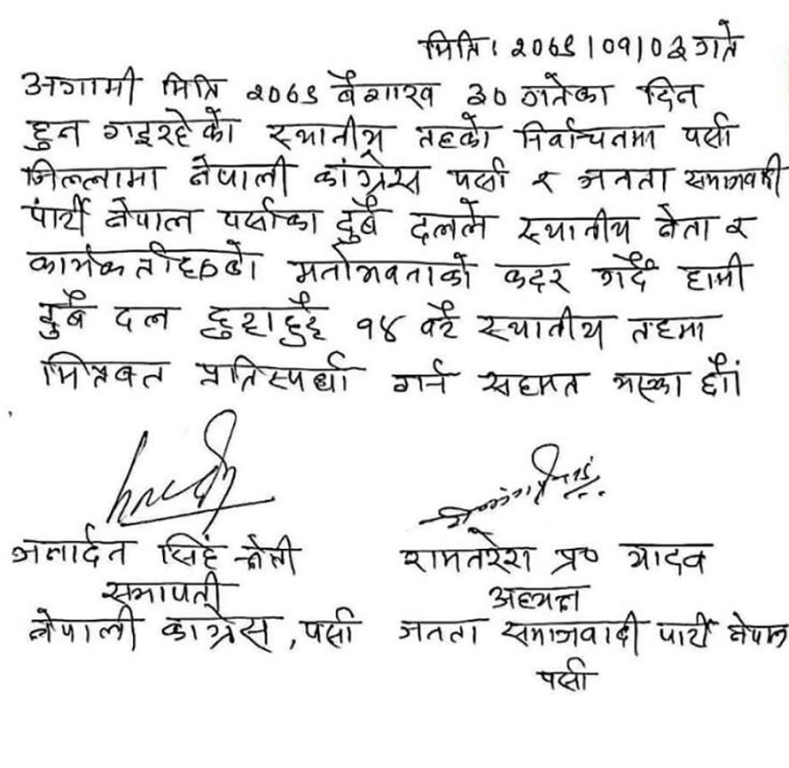 मिति। २०७९।०१।०३ गते
अगामी मिति २०७९ बैशाख ३० गतेका दिन
हुन गइरहेको स्थानीय तहको निर्वाचनमा पर्सा
जिल्लामा नेपाली कांग्रेस पर्सा र जनता समाजवादी
पार्टी नेपाल पर्साका दुबै दलले स्थानीय नेता र
कार्यकर्ताहरुको मनोभावनाको कदर गर्दै हामी
दुबै दल छुट्टाछुट्टै १४ वटै स्थानीय तहमा
मित्रवत प्रतिस्पर्धा गर्न सहमत भएका छौं।
जनार्दन सिंह क्षेत्री
सभापती
नेपाली कांग्रेस, पर्सा
रामनरेश प्र० यादव
अध्यक्ष
जनता समाजवादी पार्टी नेपाल
पर्सा